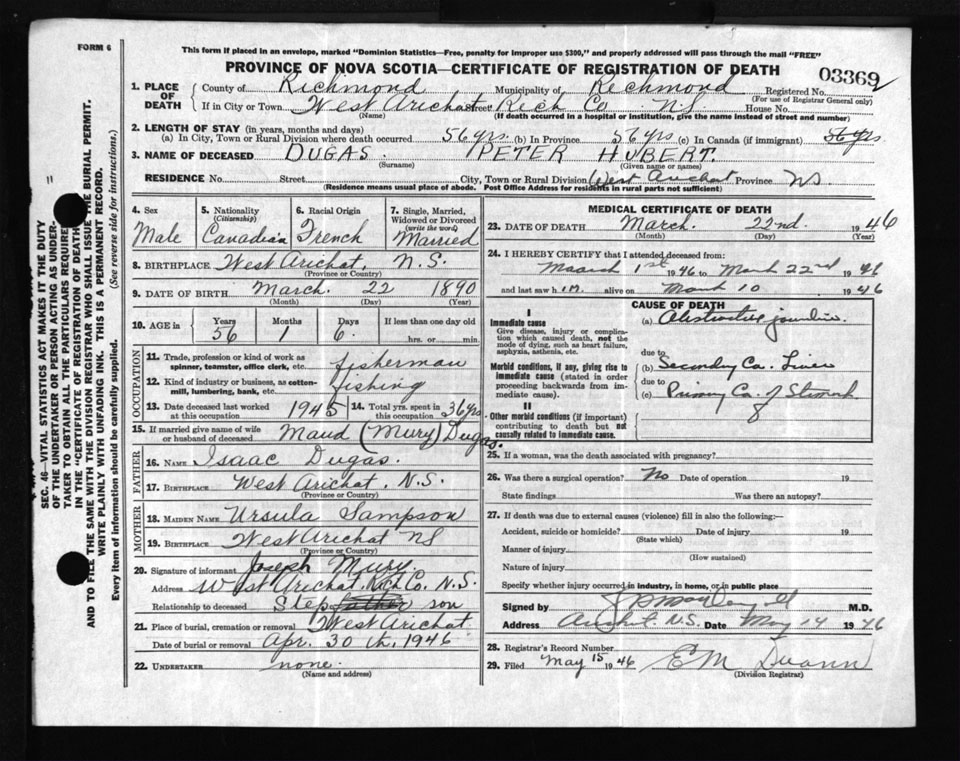 FORM 6
This form if placed in an envelope, marked "Dominion Statistics—Free, penalty for improper use $300," and properly addressed will pass through the mail "FREE"
PROVINCE OF NOVA SCOTIA—CERTIFICATE OF REGISTRATION OF DEATH
03369
1. PLACE OF DEATH
County of Richmond Municipality of Richmond Registered No.
(For use of Registrar General only)
If in City or Town West Arichat Street Rich Co N.S House No.
(Name) (If death occurred in a hospital or institution, give the name instead of street and number)
2. LENGTH OF STAY (in years, months and days)
(a) In City, Town or Rural Division where death occurred 56 yrs. (b) In Province 56 yrs (c) In Canada (if immigrant) 56 yrs
3. NAME OF DECEASED DUGAS. PETER HUBERT.
(Surname) (Given name or names)
RESIDENCE No. Street City, Town or Rural Division West Arichat Province NS
(Residence means usual place of abode. Post Office Address for residents in rural parts not sufficient)
4. Sex Male
5. Nationality (Citizenship) Canadian
6. Racial Origin French
7. Single, Married, Widowed or Divorced (write the word) Married
8. BIRTHPLACE West Arichat, N.S.
(Province or Country)
9. DATE OF BIRTH March 22 1890
(Month) (Day) (Year)
10. AGE in Years 56 Months 1 Days 6 If less than one day old
hrs. or min.
OCCUPATION
11. Trade, profession or kind of work as spinner, teamster, office clerk, etc. fisherman
12. Kind of industry or business, as cotton-mill, lumbering, bank, etc. fishing
13. Date deceased last worked at this occupation 1945
14. Total yrs. spent in this occupation 36 yrs.
15. If married give name of wife or husband of deceased Maud (Mury) Dugas.
FATHER
16. NAME Isaac Dugas.
17. BIRTHPLACE West Arichat, N.S.
(Province or Country)
MOTHER
18. MAIDEN NAME Ursula Sampson
19. BIRTHPLACE West Arichat NS
(Province or Country)
20. Signature of informant Joseph Mury.
Address West Arichat, Rich Co. N.S.
Relationship to deceased Step father son
21. Place of burial, cremation or removal West Arichat
Date of burial or removal Apr. 30th, 1946
22. UNDERTAKER none.
(Name and address)
MEDICAL CERTIFICATE OF DEATH
23. DATE OF DEATH March. 22nd. 1946
(Month) (Day) (Year)
24. I HEREBY CERTIFY that I attended deceased from:
Maarch 1st 1946 to March 22nd 1946
and last saw him alive on March 10 1946
CAUSE OF DEATH
I
Immediate cause
Give disease, injury or complication which caused death, not the mode of dying, such as heart failure, asphyxia, asthenia, etc.
(a) Obstructive jaundice.
due to
Morbid conditions, if any, giving rise to immediate cause (stated in order proceeding backwards from immediate cause).
(b) Secondary Ca. Liver
due to
(c) Primary Ca. of Stomach
II
Other morbid conditions (if important) contributing to death but not causally related to immediate cause.
25. If a woman, was the death associated with pregnancy?
26. Was there a surgical operation? No Date of operation 19
State findings Was there an autopsy?
27. If death was due to external causes (violence) fill in also the following:—
Accident, suicide or homicide? Date of injury 19
(State which)
Manner of injury
(How sustained)
Nature of injury
Specify whether injury occurred in industry, in home, or in public place
Signed by M.D.
Address Arichat, N.S. Date May 14 1946
28. Registrar's Record Number
29. Filed May 15 1946 E M
(Division Registrar)
SEC. 46—VITAL STATISTICS ACT MAKES IT THE DUTY
OF THE UNDERTAKER OR PERSON ACTING AS UNDER-
TAKER TO OBTAIN ALL THE PARTICULARS REQUIRED
IN THE "CERTIFICATE OF REGISTRATION OF DEATH"
AND TO FILE THE SAME WITH THE DIVISION REGISTRAR WHO SHALL ISSUE THE BURIAL PERMIT.
WRITE PLAINLY WITH UNFADING INK. THIS IS A PERMANENT RECORD.
Every item of information should be carefully supplied. (See reverse side for instructions.)